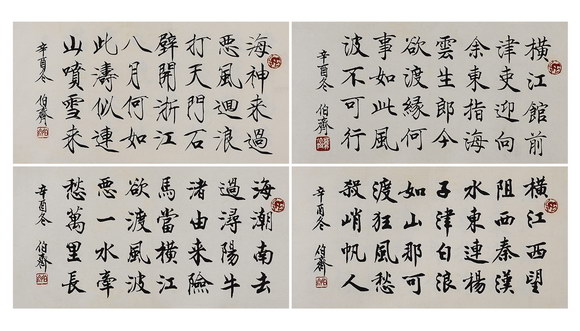 橫江館前
津吏迎向
余東指海
雲生郎今
欲渡緣何
事如此風
波不可行
辛酉冬 伯齋
海神來過
惡風迴浪
打天門石
壁開浙江
八月何如
此濤似連
山噴雪來
辛酉冬 伯齋
橫江西望
阻西秦漢
水東連楊
子津白浪
如山那可
渡狂風愁
殺峭帆人
辛酉冬 伯齋
海潮南去
過潯陽牛
渚由來險
馬當橫江
欲渡風波
惡一水牽
愁萬里長
辛酉冬 伯齋